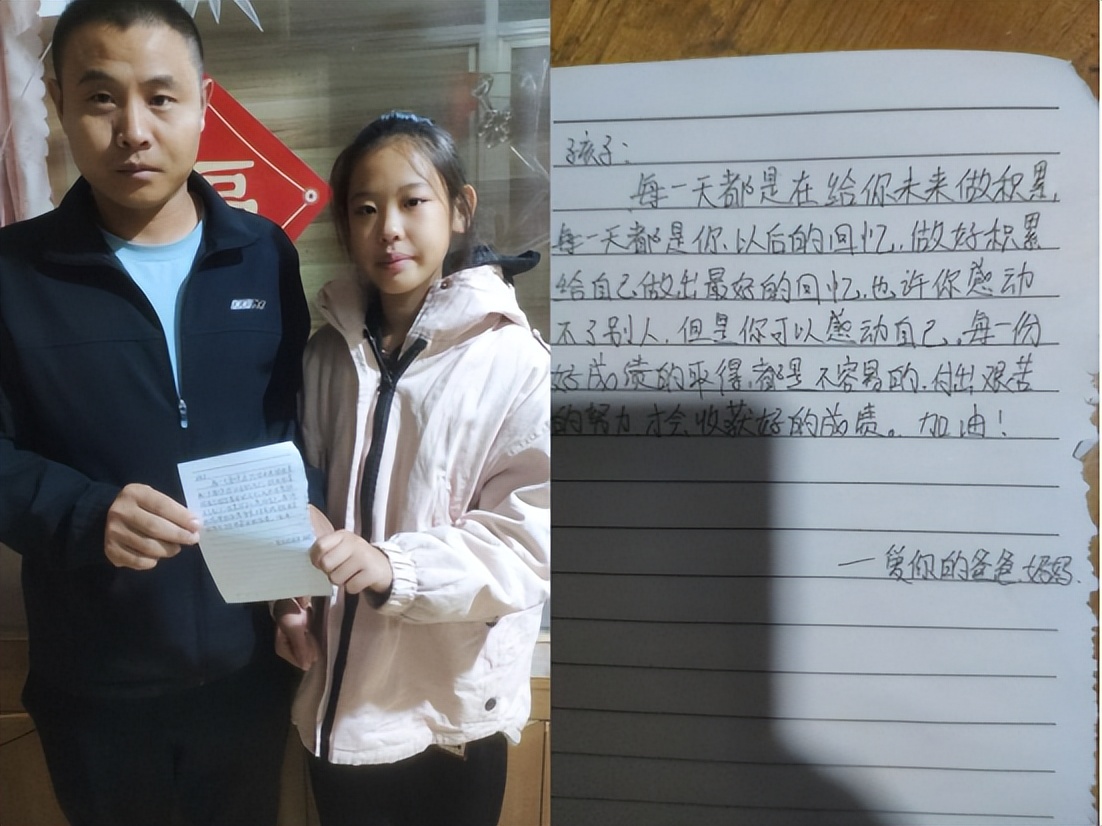 福
孩子：
每一天都是在给你未来做积累，
每一天都是你以后的回忆，做好积累
给自己做出最好的回忆，也许你感动
不了别人，但是你可以感动自己，每一份
好成绩的取得，都是不容易的，付出艰苦
的努力，才会收获好的成绩。加油！
—爱你的爸爸、妈妈